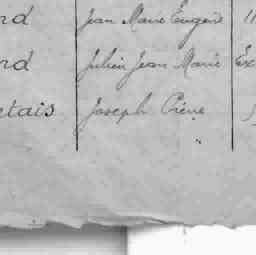 nd Jean Marie Eugène 11
nd Julien Jean Marie Ex
etais Joseph Pierre
"